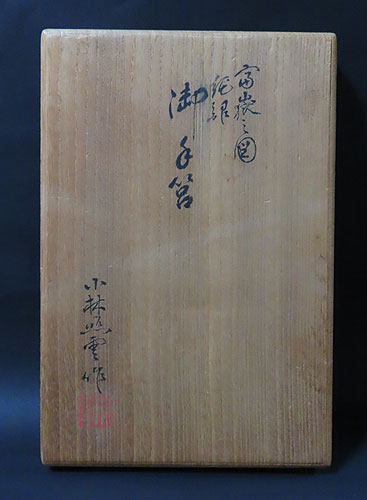 富嶽之図
純銀
御手筥
小林照雲作